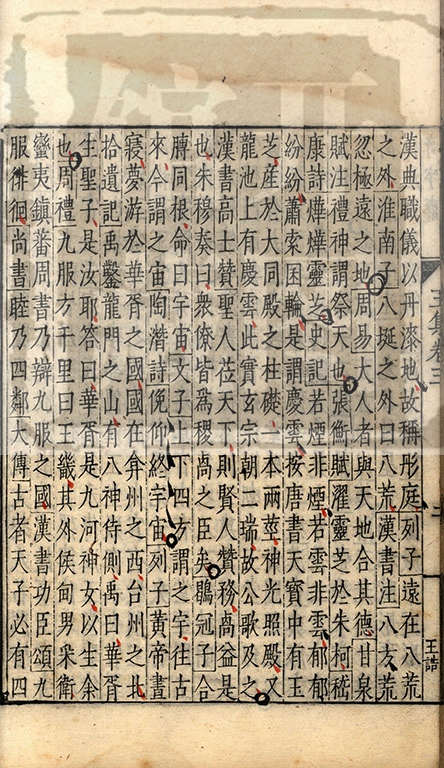 漢典職儀以丹漆地故稱彤庭列子遠在八荒
之外淮南子八埏之外曰八荒漢書注八方荒
忽極遠之地周易大人者與天地合其德甘泉
賦注禮神謂祭天也張衡賦濯靈芝於朱柯嵇
康詩燁燁靈芝史記若煙非煙若雲非雲郁郁
紛紛蕭索困輪是謂慶雲按唐書天寶中有玉
芝産於大同殿之柱礎一本兩莖神光照殿又
龍池上有慶雲此實玄宗朝二瑞故公歌及之
漢書高士贊聖人莅天下則賢人贊務卨益是
也朱穆奏曰衆僚皆爲稷卨之臣矣鶡冠子合
膊同根命曰宇宙文子上下四方謂之宇往古
來今謂之宙陶潛詩俛仰終宇宙列子黃帝晝
寢夢游於華胥之國國在弇州之西台州之北
拾遺記禹鑿龍門之山有八神侍側禹曰華胥
生聖子是汝耶答曰華胥是九河神女以生余
也周禮九服方千里曰王畿其外侯甸男采衛
蠻夷鎮蕃周書乃辯九服之國漢書功臣頌九
服徘徊尚書睦乃四鄰大傳古者天子必有四